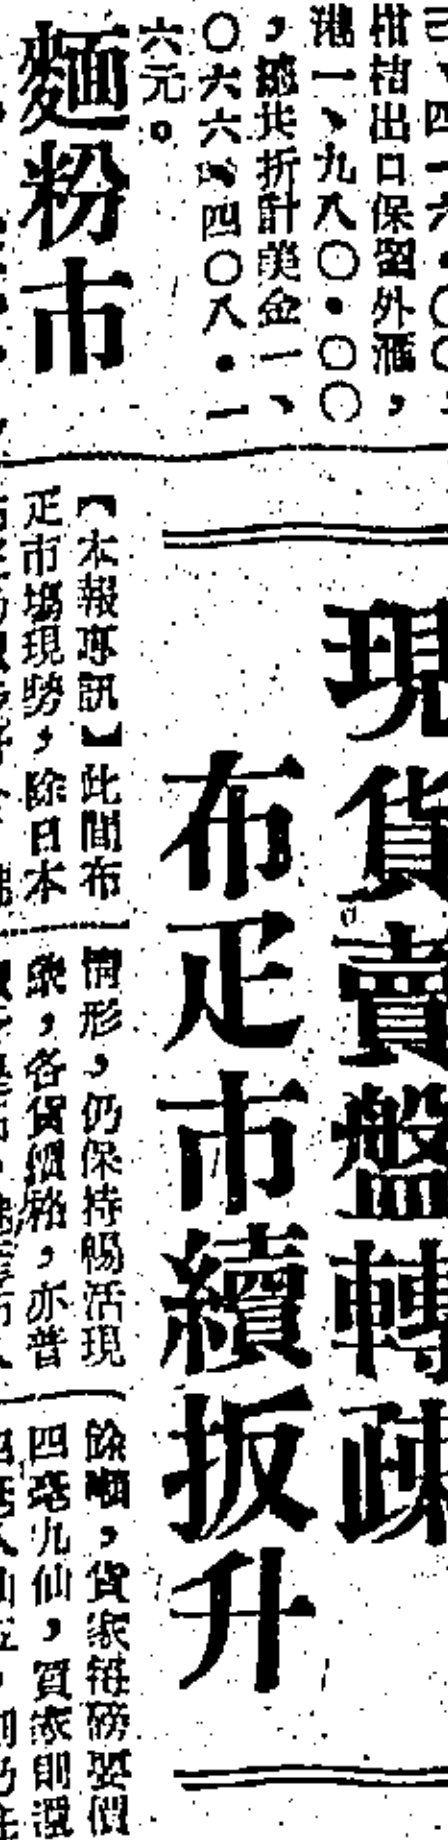 三、四一六・〇〇，
柑桔出口保留外滙，
港一、九八〇・〇〇
，總共折計美金一、
〇六六、四〇八・一
六元。
麵粉市
現貨賣盤轉疎
布疋市續扳升
【本報專訊】此間布
疋市塲現勢，除日本
情形，仍保持暢活現
象，各貨價格，亦普
餘噸，貨家每磅要價
四毫九仙，買家則還